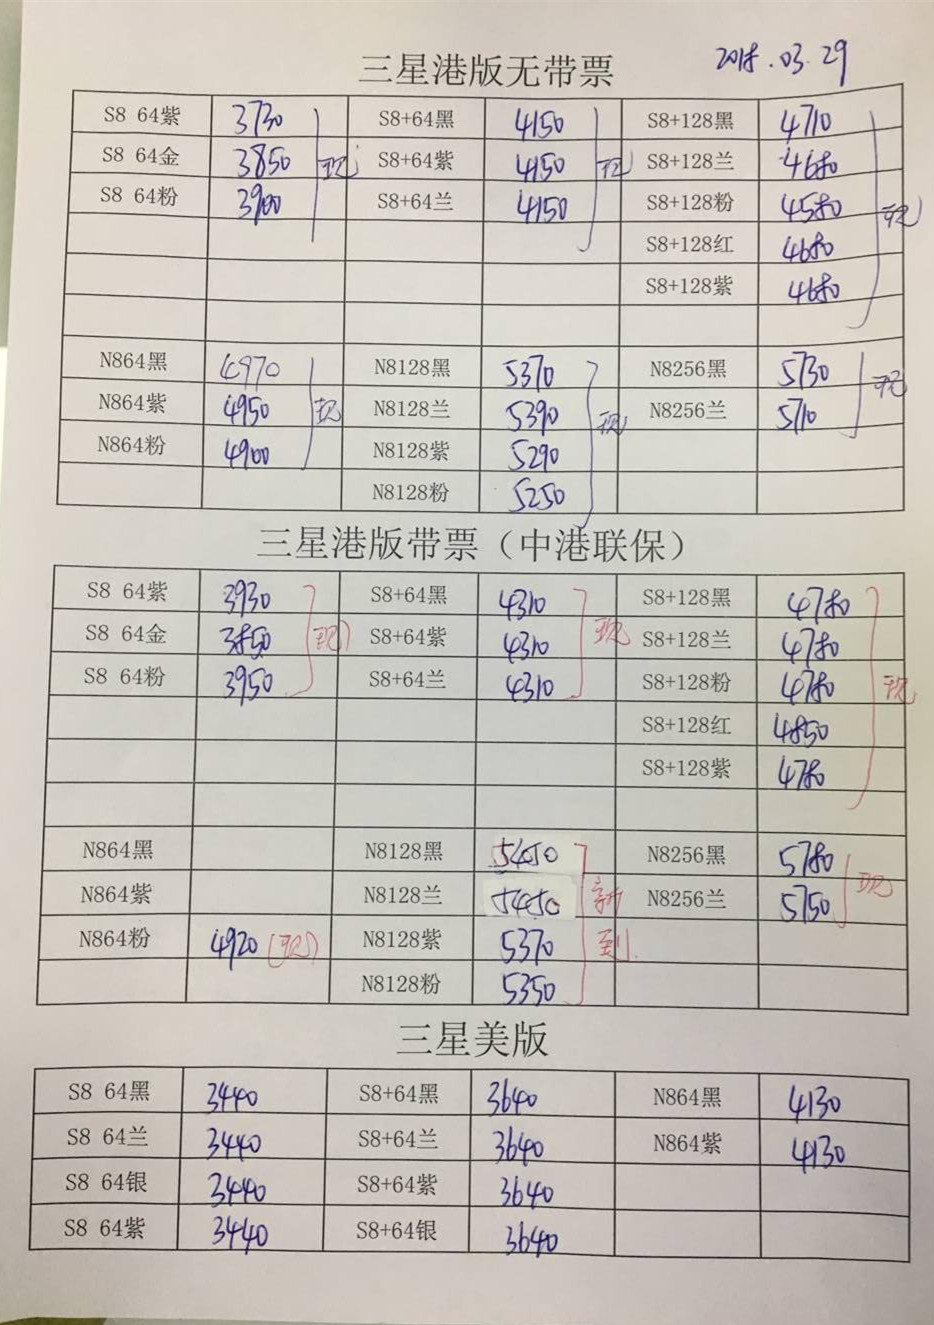 三星港版无带票 2018.03.29
S8 64紫 3730 S8+64黑 4150 S8+128黑 4710
S8 64金 3850 现 S8+64紫 4150 现 S8+128兰 4680
S8 64粉 3900 S8+64兰 4150 S8+128粉 4580 现
S8+128红 4680
S8+128紫 4680
N864黑 4970 N8128黑 5370 N8256黑 5730 现
N864紫 4950 现 N8128兰 5390 现 N8256兰 5710
N864粉 4900 N8128紫 5290
N8128粉 5250
三星港版带票（中港联保）
S8 64紫 3930 S8+64黑 4310 S8+128黑 4780
S8 64金 3850 现 S8+64紫 4310 现 S8+128兰 4780
S8 64粉 3950 S8+64兰 4310 S8+128粉 4780 现
S8+128红 4850
S8+128紫 4780
N864黑 N8128黑 5450 N8256黑 5780 现
N864紫 N8128兰 5450 新 N8256兰 5750
N864粉 4920(现) N8128紫 5370 到
N8128粉 5350
三星美版
S8 64黑 3440 S8+64黑 3640 N864黑 4130
S8 64兰 3440 S8+64兰 3640 N864紫 4130
S8 64银 3440 S8+64紫 3640
S8 64紫 3440 S8+64银 3640